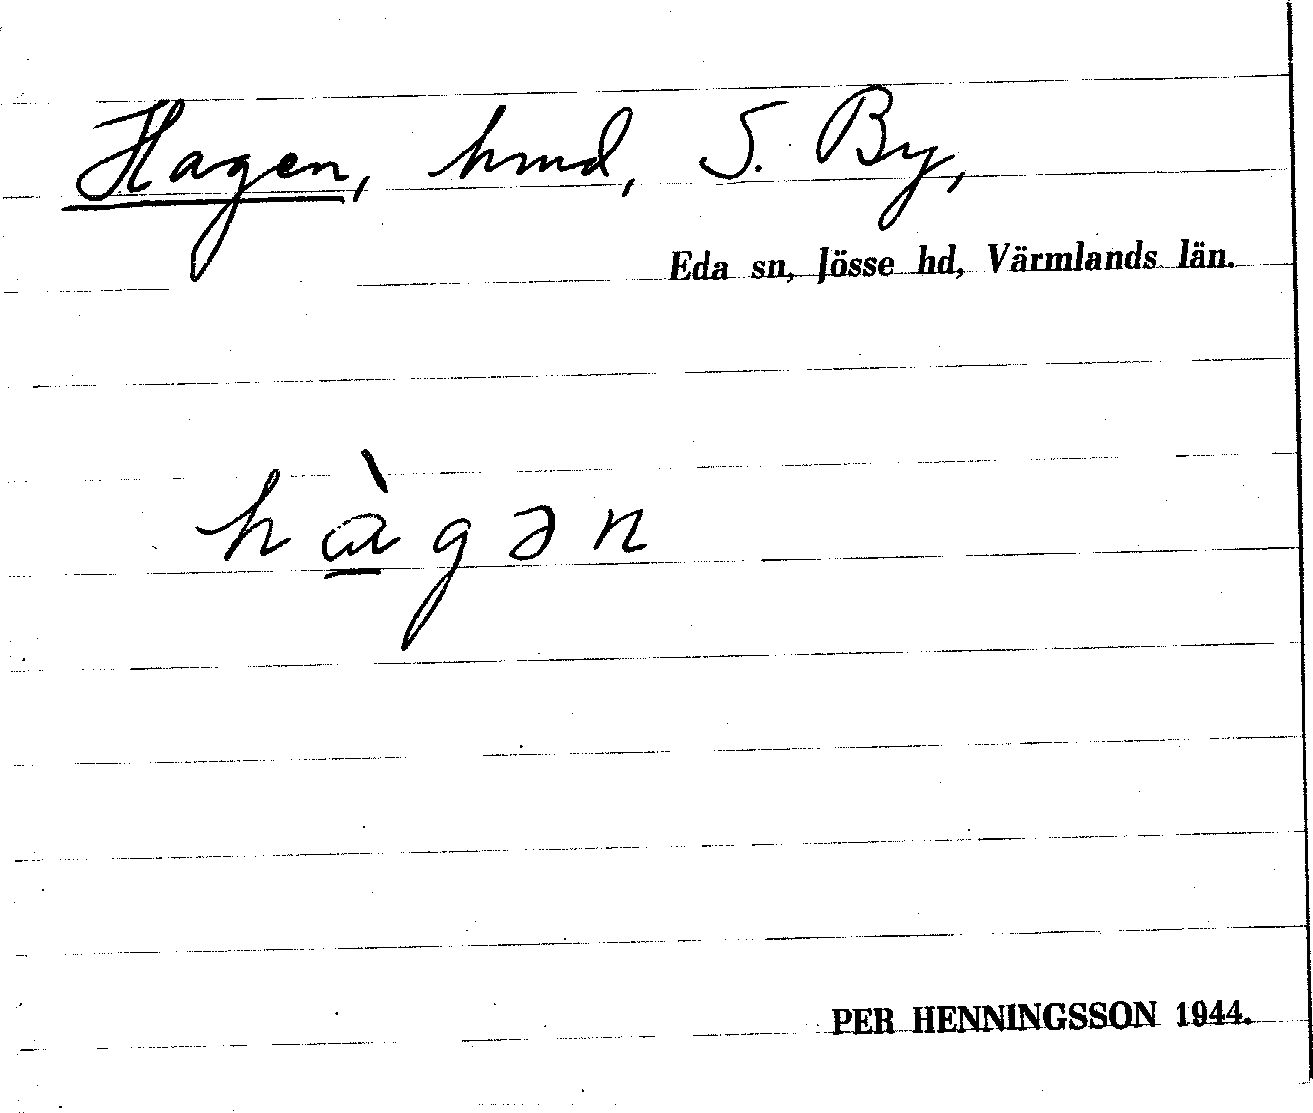 Hagen, hmd, S. By,
Eda sn, Jösse hd, Värmlands län.
hàgən
PER HENNINGSSON 1944.